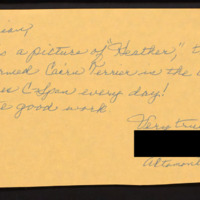 s a picture of "Heather," t
Cairn Terrier in the
es C-Span every day!
e good work.
Very tru
Altamont